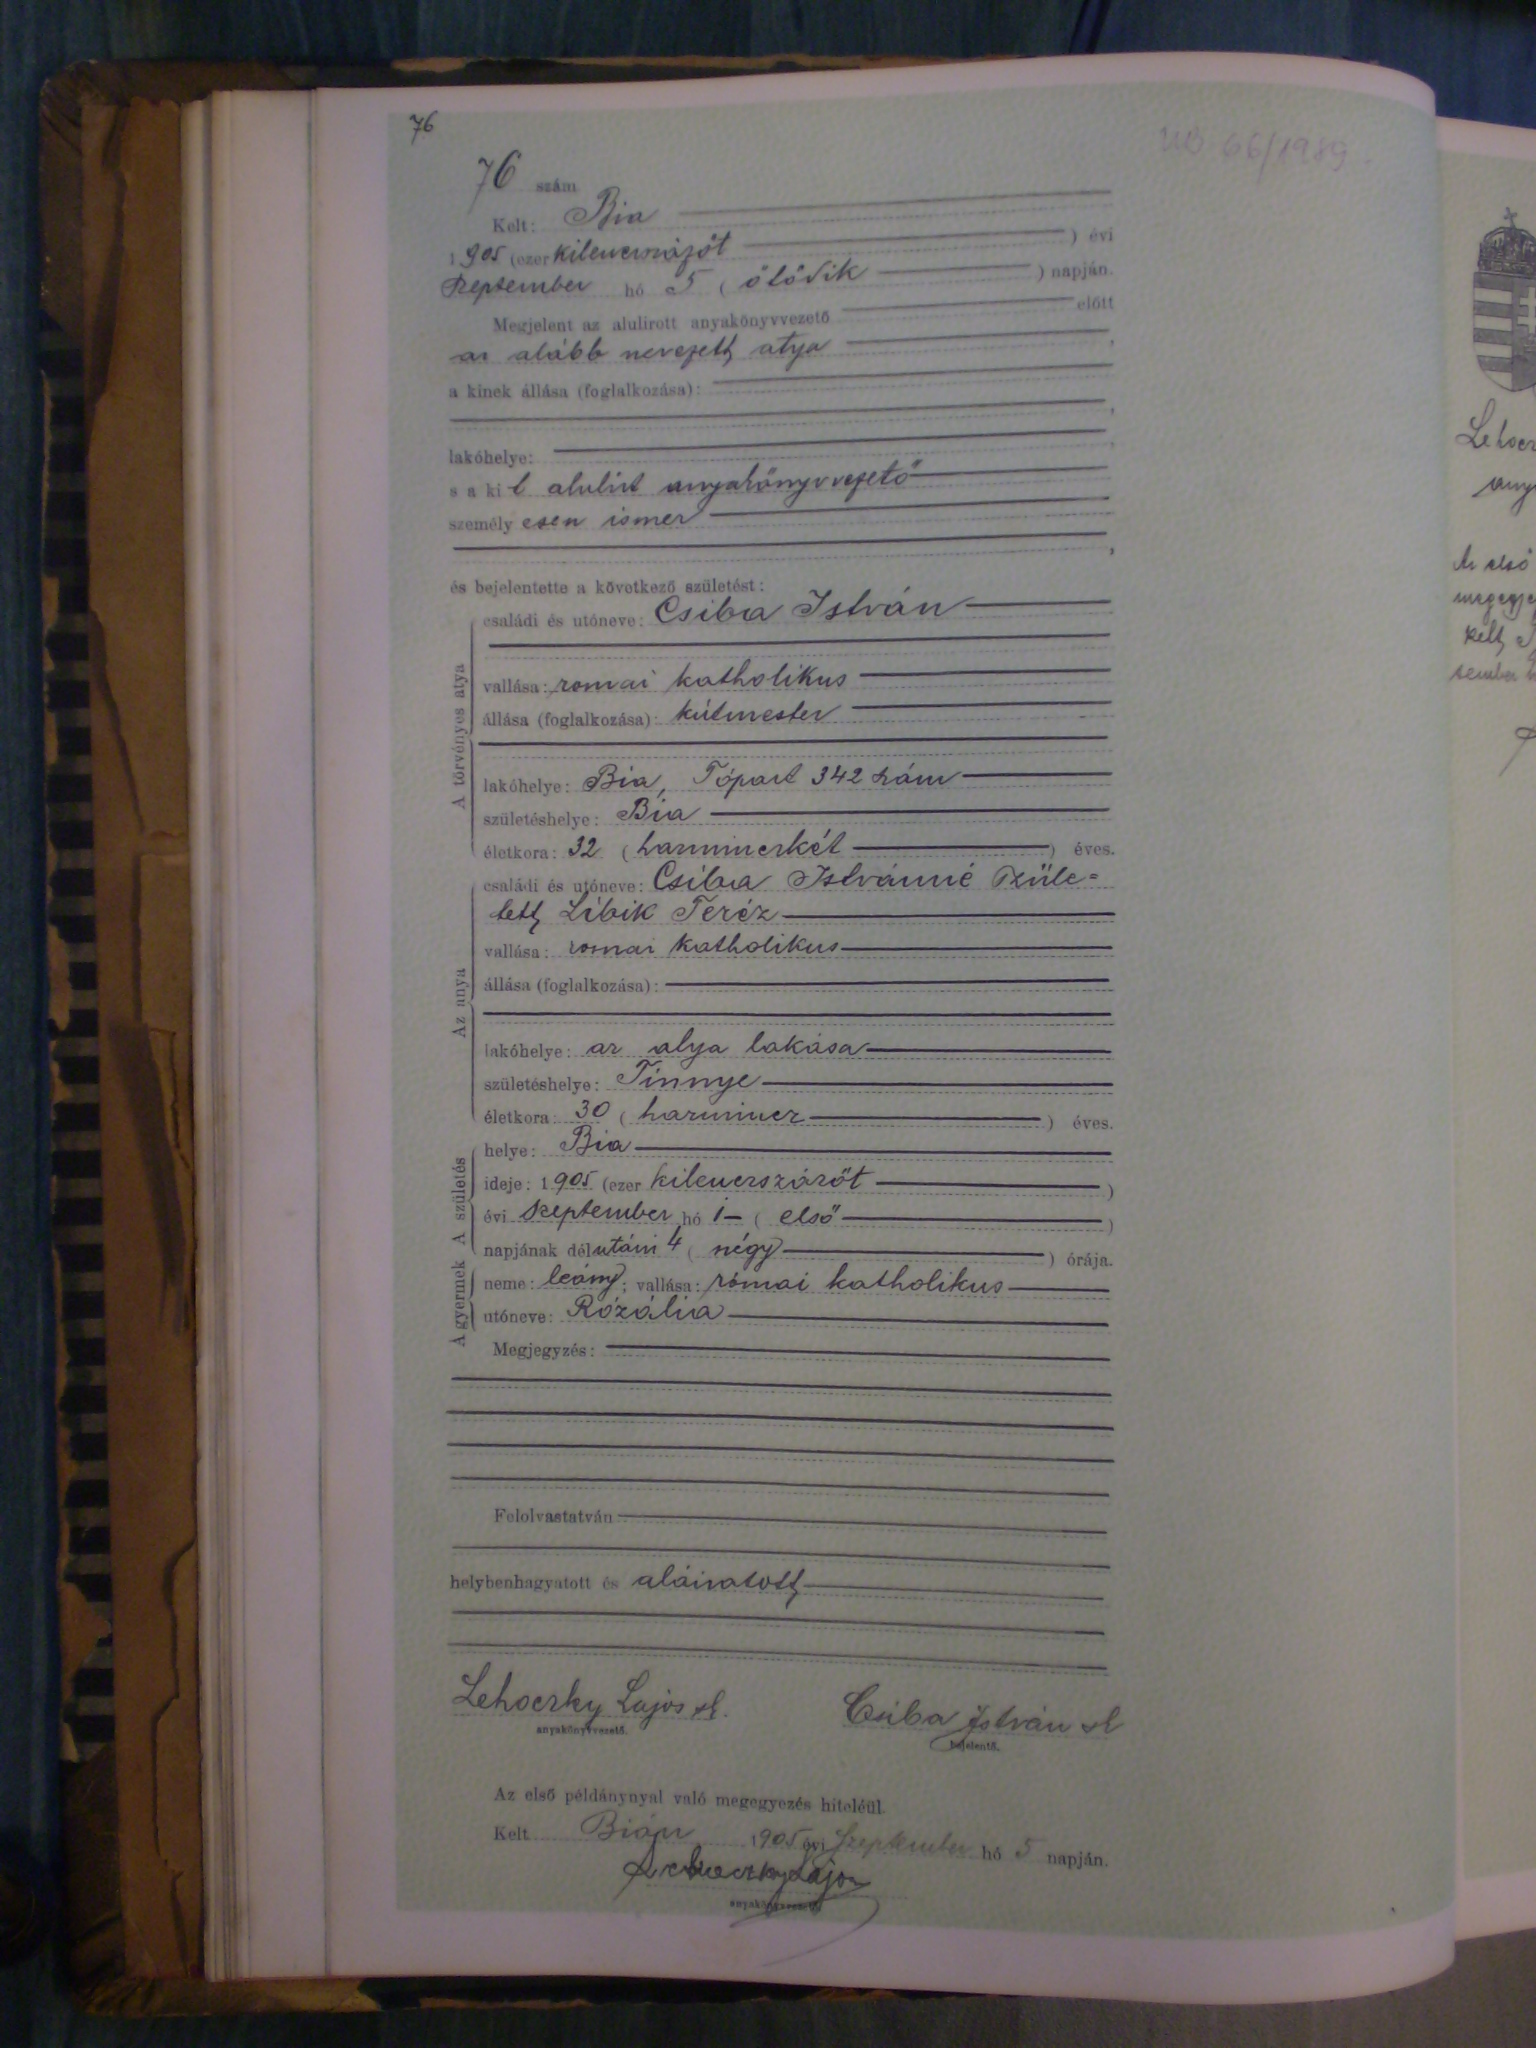 76
66/1989.
76 szám
Kelt: Bia
1905 (ezer kilencszázöt ) évi
szeptember hó 5 ( ötödik ) napján.
Megjelent az alulirott anyakönyvvezető előtt
az alább nevezett atya ,
a kinek állása (foglalkozása):
,
lakóhelye: ,
s a kit alulirt anyakönyvvezető
személyesen ismer
,
és bejelentette a következő születést:
A törvényes atya
családi és utóneve: Csiba István
vallása: romai katholikus
állása (foglalkozása): kútmester
lakóhelye: Bia, Tópart 342 szám
születéshelye: Bia
életkora: 32 ( harminczkét ) éves.
Az anya
családi és utóneve: Csiba Istvánné szüle=
tett Libik Teréz
vallása: romai katholikus
állása (foglalkozása):
lakóhelye: az atya lakása
születéshelye: Tinnye
életkora: 30 ( harmincz ) éves.
A születés
helye: Bia
ideje: 1905 (ezer kilenczszázöt )
évi szeptember hó 1- ( első )
napjának délutáni 4 ( négy ) órája.
A gyermek
neme: leány; vallása: római katholikus
utóneve: Rózália
Megjegyzés:
Felolvastatván
helybenhagyatott és aláiratott
Lehoczky Lajos sk. Csiba István sk
anyakönyvvezető. bejelentő.
Az első példánynyal való megegyezés hiteléül.
Kelt Bián 1905 évi szeptember hó 5 napján.
Lehoczky Lajos
anyakönyvvezető
Lehocz
anya
Az első
megegye
kelt
tember h